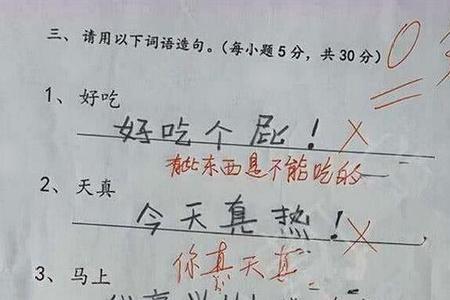 三、请用以下词语造句。(每小题5分，共30分) 0
1、好吃
好吃个屁！
有些东西是不能吃的
2、天真
今天真热！
你真天真
3、马上